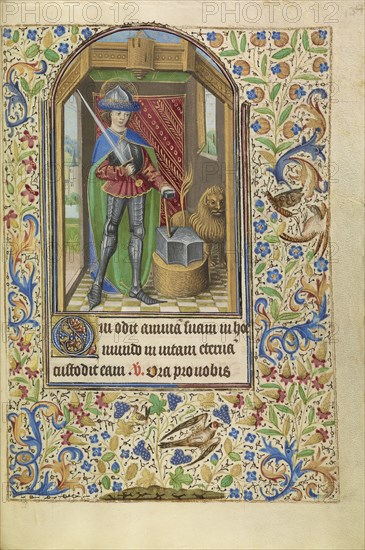 Qui odit animā suam in hoc
mundo in vitam eternā
custodit eam. V. Ora pro nobis